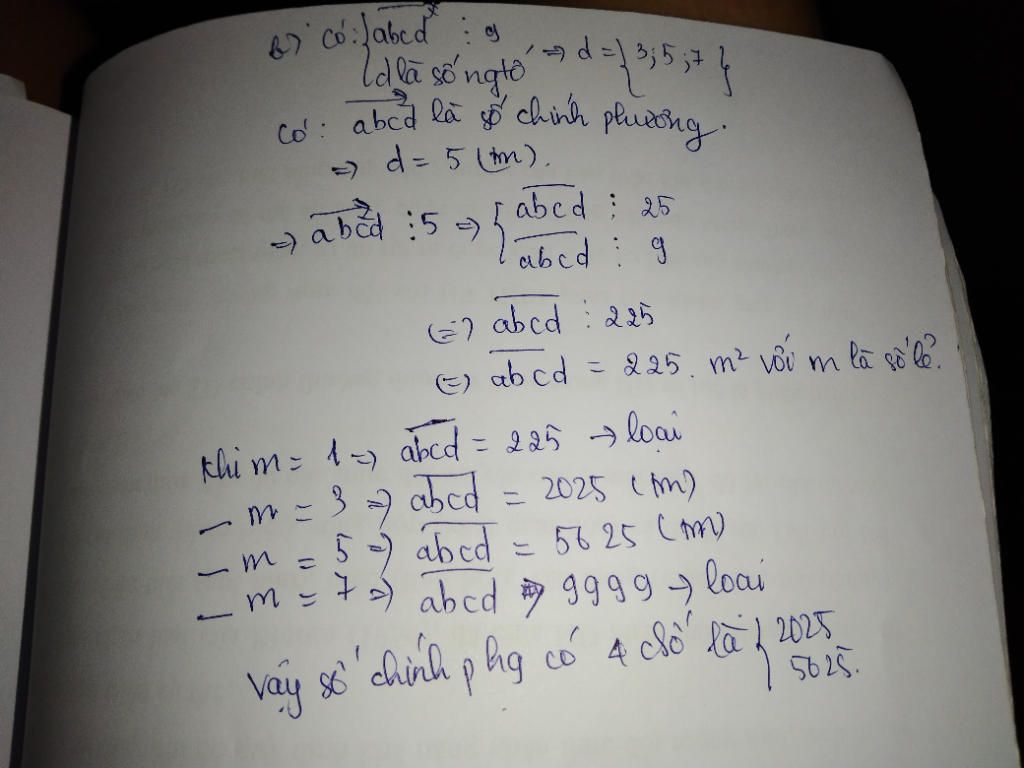 b) Có: { abcd ⋮ 9
d là số ngtố ⇒ d = {3; 5; 7}
Có: abcd là số chính phương.
⇒ d = 5 (tm).
⇒ abcd ⋮ 5 ⇒ { abcd ⋮ 25
abcd ⋮ 9
⇔ abcd ⋮ 225
⇔ abcd = 225. m² với m là số lẻ.
Khi m = 1 ⇒ abcd = 225 → loại
– m = 3 ⇒ abcd = 2025 (tm)
– m = 5 ⇒ abcd = 5625 (tm)
– m = 7 ⇒ abcd > 9999 → loại
Vậy số chính phg có 4 chữ số là { 2025
5625.